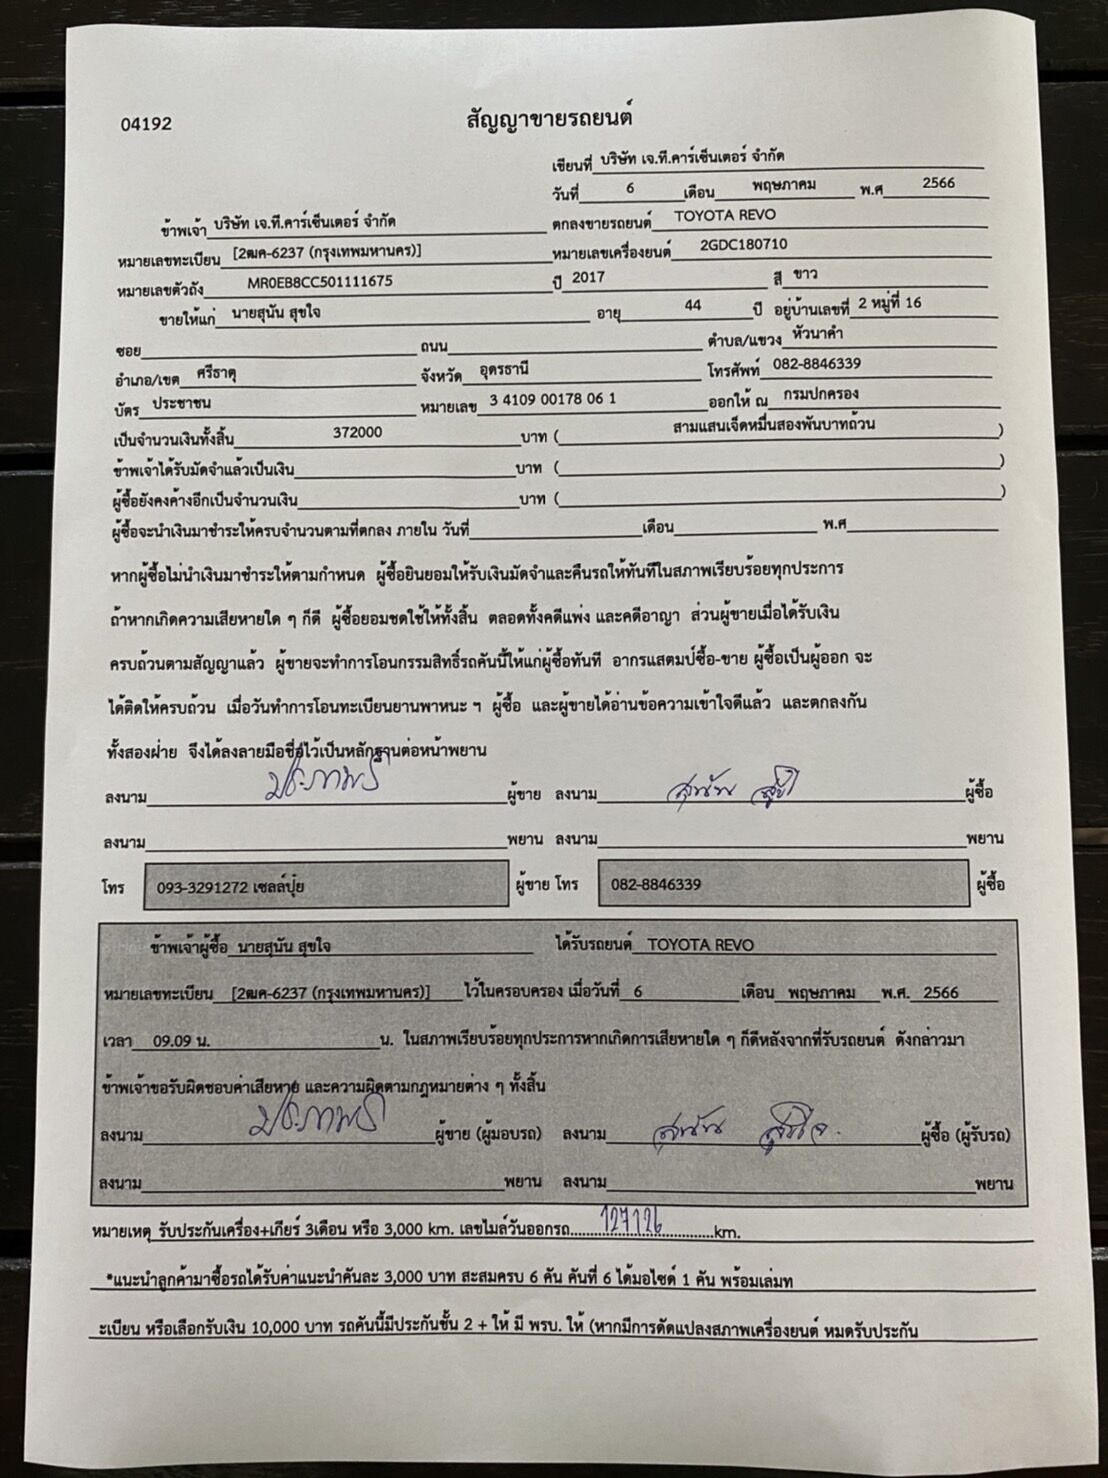 04192
สัญญาขายรถยนต์
เขียนที่ บริษัท เจ.ที.คาร์เซ็นเตอร์ จำกัด
วันที่ 6 เดือน พฤษภาคม พ.ศ 2566
ข้าพเจ้า บริษัท เจ.ที.คาร์เซ็นเตอร์ จำกัด ตกลงขายรถยนต์ TOYOTA REVO
หมายเลขทะเบียน [2ฒค-6237 (กรุงเทพมหานคร)] หมายเลขเครื่องยนต์ 2GDC180710
หมายเลขตัวถัง MR0EB8CC501111675 ปี 2017 สี ขาว
ขายให้แก่ นายสุนัน สุขใจ อายุ 44 ปี อยู่บ้านเลขที่ 2 หมู่ที่ 16
ซอย ถนน ตำบล/แขวง หัวนาคำ
อำเภอ/เขต ศรีธาตุ จังหวัด อุดรธานี โทรศัพท์ 082-8846339
บัตร ประชาชน หมายเลข 3 4109 00178 06 1 ออกให้ ณ กรมปกครอง
เป็นจำนวนเงินทั้งสิ้น 372000 บาท ( สามแสนเจ็ดหมื่นสองพันบาทถ้วน )
ข้าพเจ้าได้รับมัดจำแล้วเป็นเงิน บาท ( )
ผู้ซื้อยังคงค้างอีกเป็นจำนวนเงิน บาท ( )
ผู้ซื้อจะนำเงินมาชำระให้ครบจำนวนตามที่ตกลง ภายใน วันที่ เดือน พ.ศ
หากผู้ซื้อไม่นำเงินมาชำระให้ตามกำหนด ผู้ซื้อยินยอมให้รับเงินมัดจำและคืนรถให้ทันทีในสภาพเรียบร้อยทุกประการ
ถ้าหากเกิดความเสียหายใด ๆ ก็ดี ผู้ซื้อยอมชดใช้ให้ทั้งสิ้น ตลอดทั้งคดีแพ่ง และคดีอาญา ส่วนผู้ขายเมื่อได้รับเงิน
ครบถ้วนตามสัญญาแล้ว ผู้ขายจะทำการโอนกรรมสิทธิ์รถคันนี้ให้แก่ผู้ซื้อทันที อากรแสตมป์ซื้อ-ขาย ผู้ซื้อเป็นผู้ออก จะ
ได้ติดให้ครบถ้วน เมื่อวันทำการโอนทะเบียนยานพาหนะ ฯ ผู้ซื้อ และผู้ขายได้อ่านข้อความเข้าใจดีแล้ว และตกลงกัน
ทั้งสองฝ่าย จึงได้ลงลายมือชื่อไว้เป็นหลักฐานต่อหน้าพยาน
ลงนาม ประภาพร ผู้ขาย ลงนาม สุนัน สุขใจ ผู้ซื้อ
ลงนาม พยาน ลงนาม พยาน
โทร 093-3291272 เซลล์ปุ๋ย ผู้ขาย โทร 082-8846339 ผู้ซื้อ
ข้าพเจ้าผู้ซื้อ นายสุนัน สุขใจ ได้รับรถยนต์ TOYOTA REVO
หมายเลขทะเบียน [2ฒค-6237 (กรุงเทพมหานคร)] ไว้ในครอบครอง เมื่อวันที่ 6 เดือน พฤษภาคม พ.ศ. 2566
เวลา 09.09 น. น. ในสภาพเรียบร้อยทุกประการหากเกิดการเสียหายใด ๆ ก็ดีหลังจากที่รับรถยนต์ ดังกล่าวมา
ข้าพเจ้าขอรับผิดชอบค่าเสียหาย และความผิดตามกฎหมายต่าง ๆ ทั้งสิ้น
ลงนาม ประภาพร ผู้ขาย (ผู้มอบรถ) ลงนาม สุนัน สุขใจ ผู้ซื้อ (ผู้รับรถ)
ลงนาม พยาน ลงนาม พยาน
หมายเหตุ รับประกันเครื่อง+เกียร์ 3เดือน หรือ 3,000 km. เลขไมล์วันออกรถ....127126....km.
*แนะนำลูกค้ามาซื้อรถได้รับค่าแนะนำคันละ 3,000 บาท สะสมครบ 6 คัน คันที่ 6 ได้มอไซด์ 1 คัน พร้อมเล่มท
ะเบียน หรือเลือกรับเงิน 10,000 บาท รถคันนี้มีประกันชั้น 2 + ให้ มี พรบ. ให้ (หากมีการดัดแปลงสภาพเครื่องยนต์ หมดรับประกัน